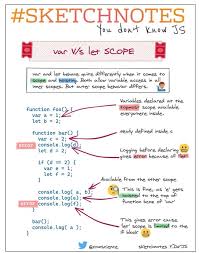 #SKETCHNOTES
You don't Know JS
var V/s let SCOPE
var and let behave quite differently when it comes to
scope and hoisting. Both allow variable access in all
inner scopes. But outer scope behavior differs.
function foo() {
var a = 1;
let b = 2;
Variables declared at the
topmost scope available
everywhere inside.
function bar() {
var c = 2;
error console.log(d);
let d = 2;
newly defined inside c
Logging before declaring
gives error because of
if (d == 2) {
var e = 1;
let f = 2;
}
Available from the outer scope
console.log( a, b);
console.log(e);
error console.log(f);
}
This is fine, as 'e' gets
hoisted to the top of
function bar
bar();
console.log( a );
}
This gives error cause
'let' scope is limited to the
if block
sketchnotes